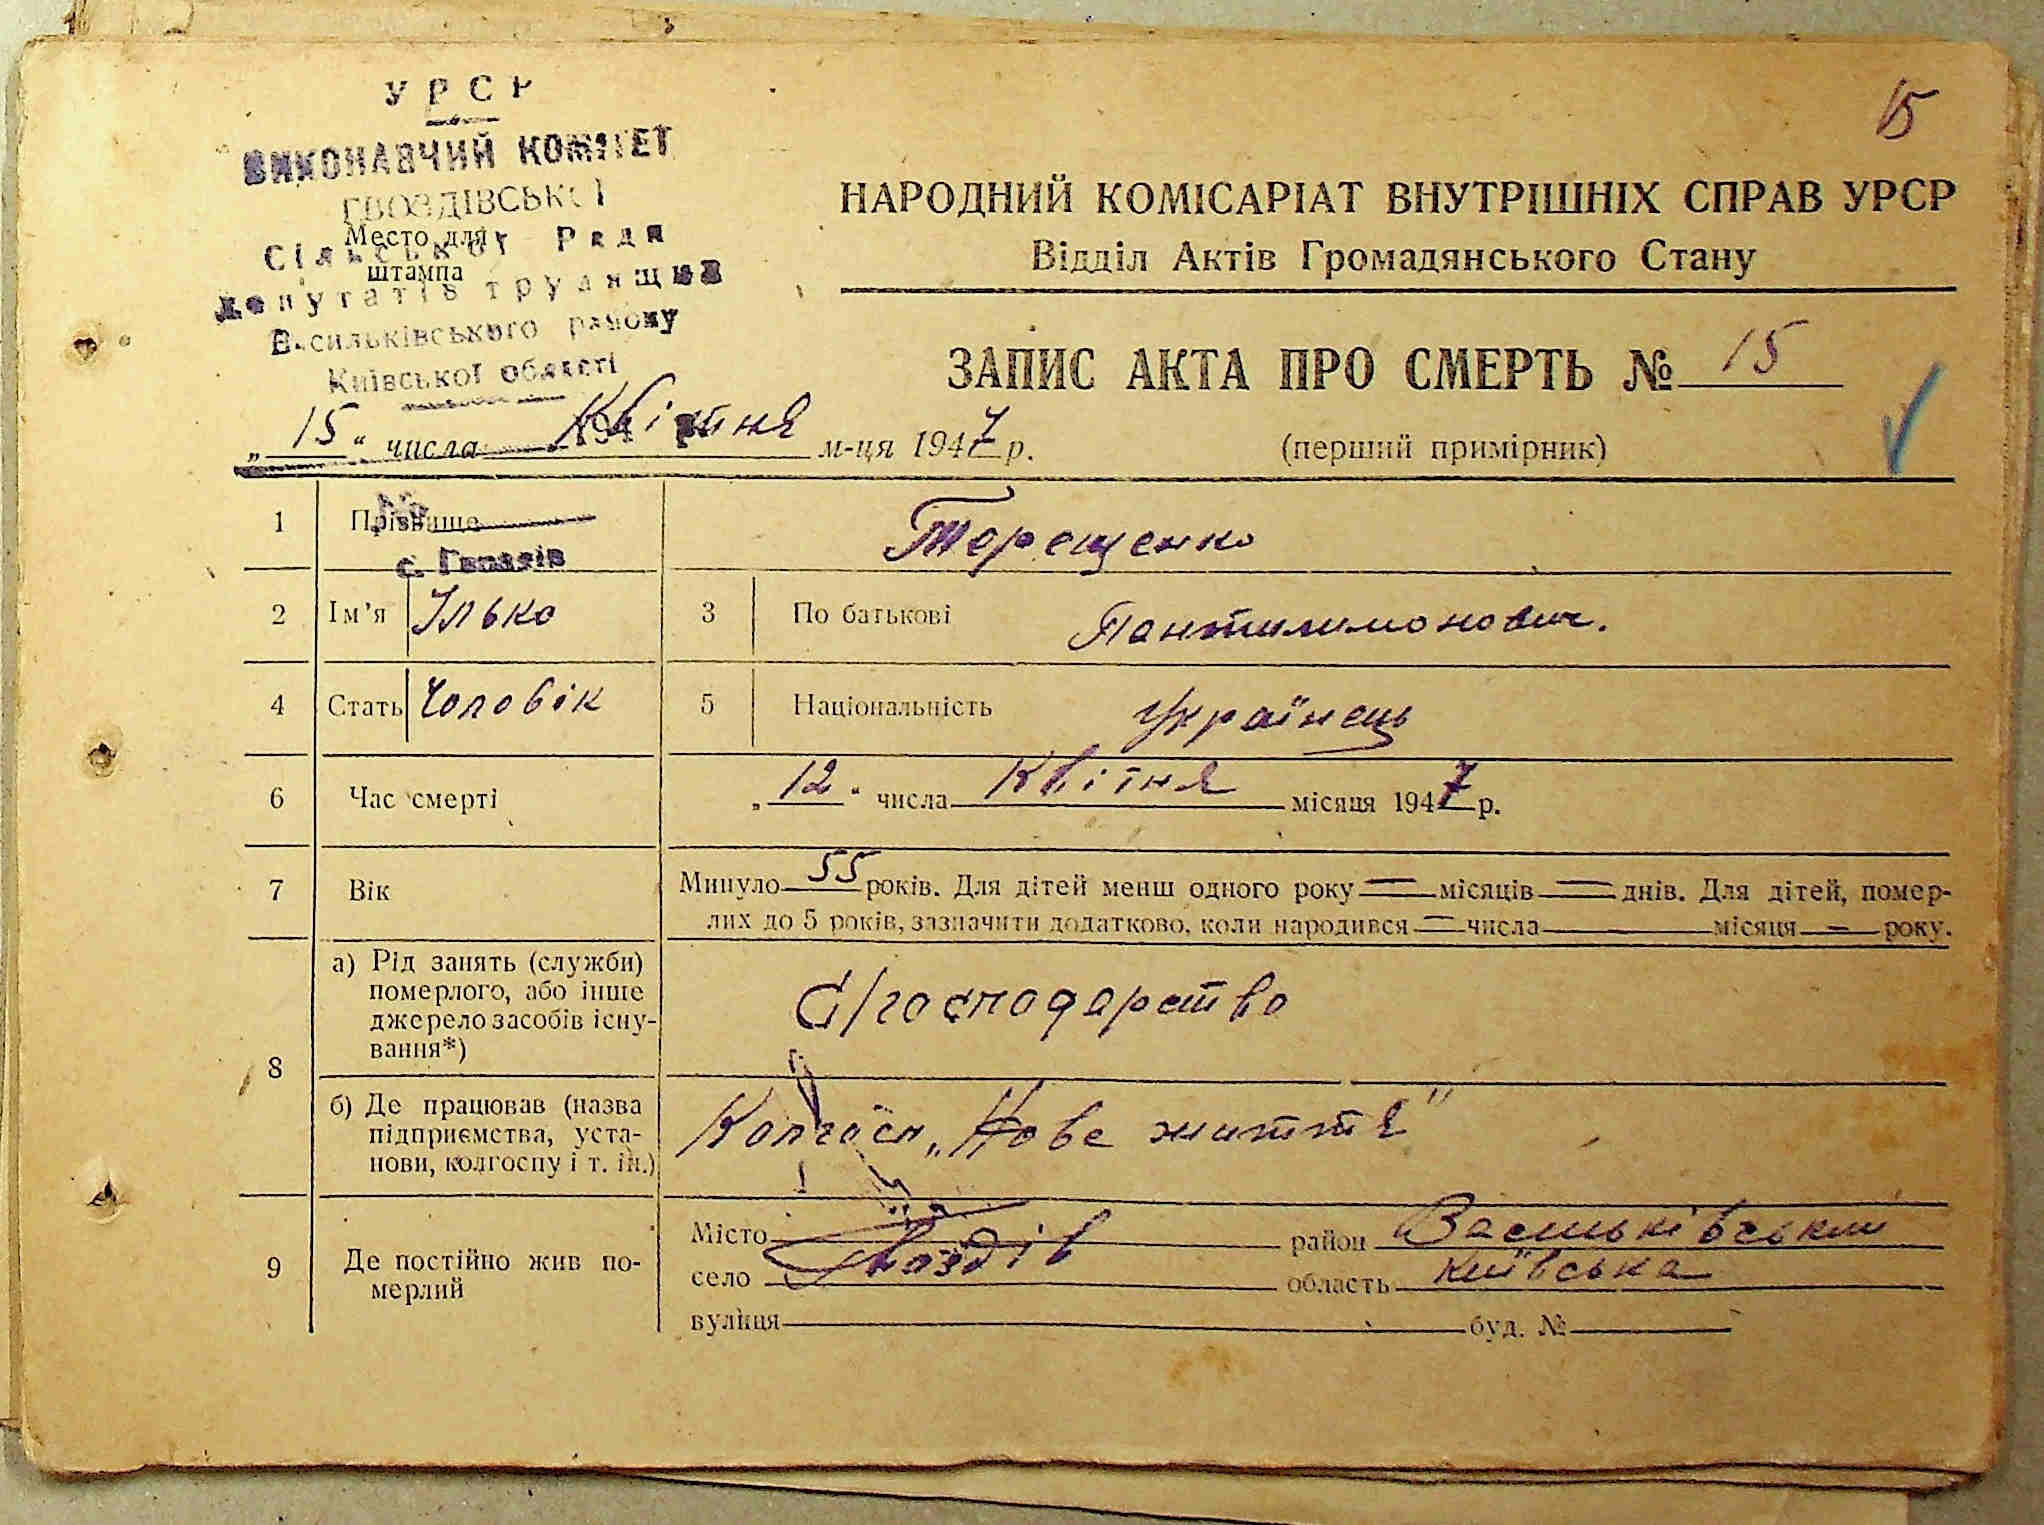 15
УРСР
ВИКОНАВЧИЙ КОМІТЕТ
ГВОЗДІВСЬКОЇ
Место для
Сільської Ради
штампа
депутатів трудящих
Васильківського району
Київської області
НАРОДНИЙ КОМІСАРІАТ ВНУТРІШНІХ СПРАВ УРСР
Відділ Актів Громадянського Стану
ЗАПИС АКТА ПРО СМЕРТЬ № 15
„15“ числа Квітня м-ця 1947 р.
(перший примірник)
1 Прізвище Терещенко
с. Гвоздів
2 Ім'я Ілько 3 По батькові Пантилимонович.
4 Стать Чоловік 5 Національність Українець
6 Час смерті „12“ числа Квітня місяця 1947 р.
7 Вік Минуло 55 років. Для дітей менш одного року — місяців — днів. Для дітей, помер-
лих до 5 років, зазначити додатково, коли народився — числа — місяця — року.
8 а) Рід занять (служби)
померлого, або інше
джерело засобів існу-
вання*)
С/господарство
б) Де працював (назва
підприємства, уста-
нови, колгоспу і т. ін.)
Колгосп „Нове життя"
9 Де постійно жив по-
мерлий
Місто район Васильківський
село Гвоздів область Київська
вулиця буд. №